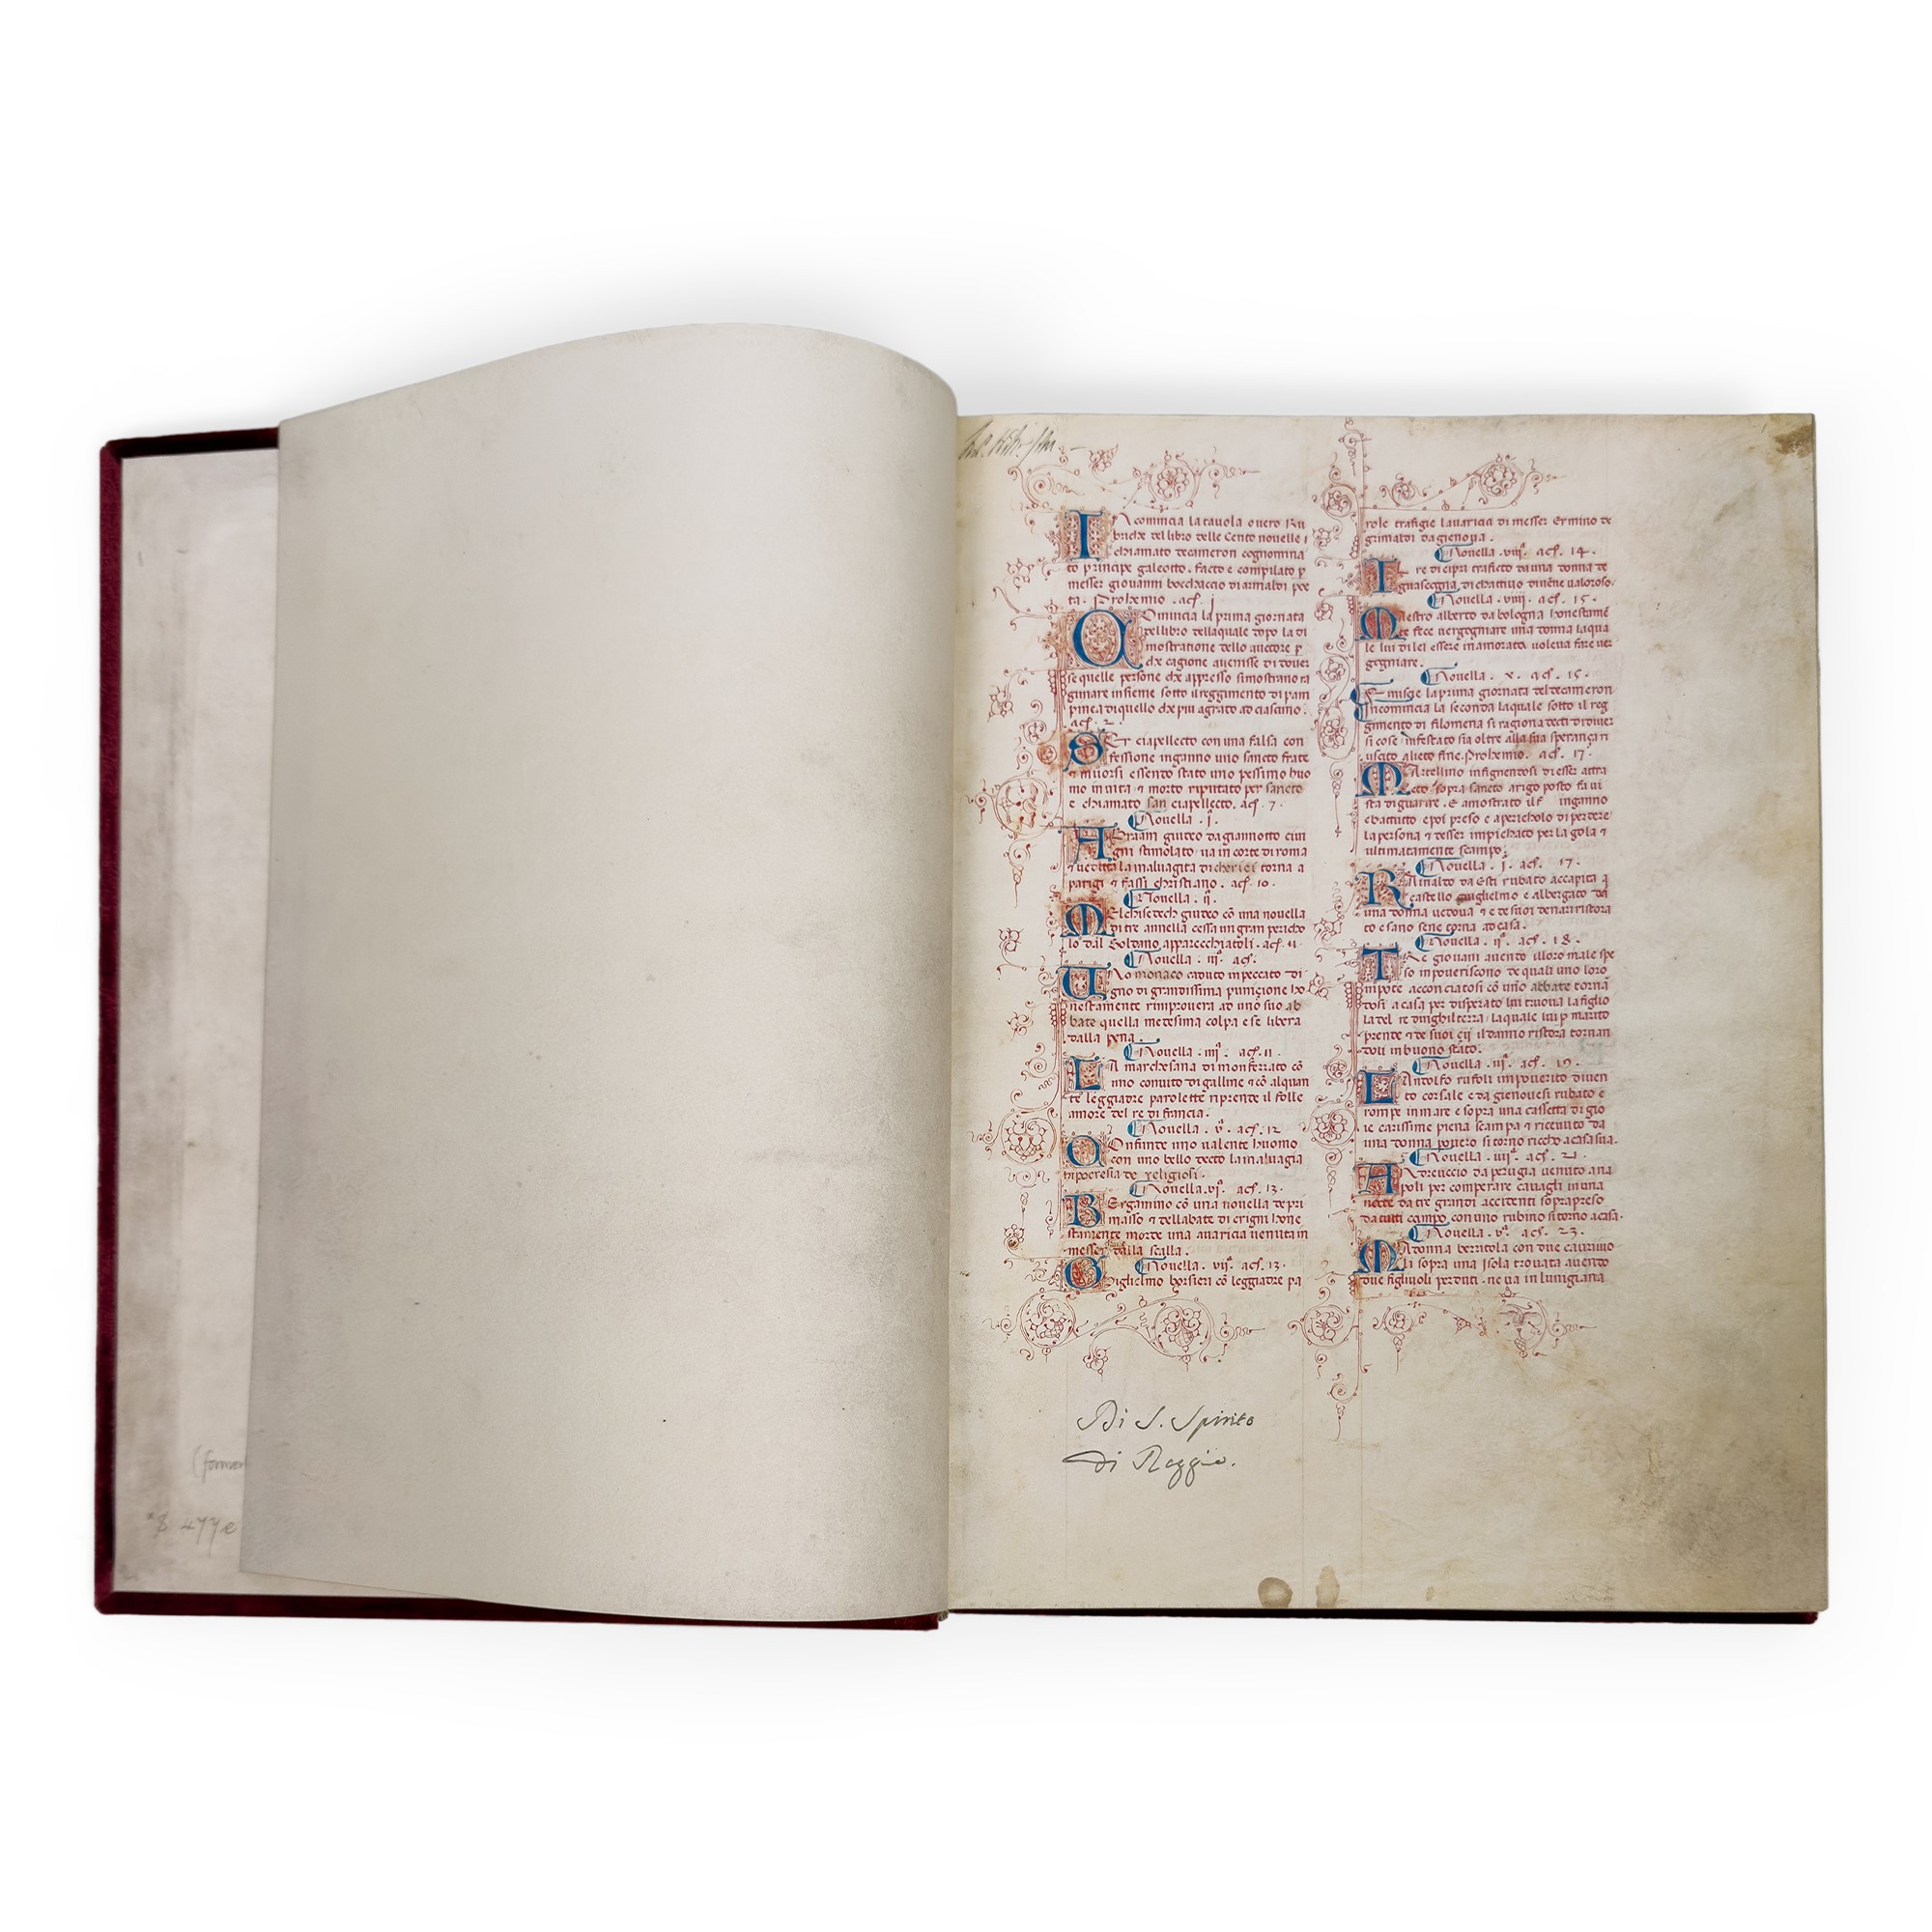 N comincia la tauola o uero Ru
briche del libro delle Cento nouelle i
chiamato decameron cognomina
to principe galeotto. facto e compilato p
messer giouanni bocchaccio di arnaldi poe
ta. Prohemio. acf. j
Ominicia la prima giornata
del libro della quale dopo la di
mostratione dello auctore p
che cagione auenisse di douer
se quelle persone che appresso si mostrano ra
gunare insieme sotto il reggimento di pam
pinea di quello che piu agrato ad ciascuno.
acf. 2.
Er ciapellecto con una falsa con
fessione inganno uno sancto frate
⁊ muorsi essendo stato uno pessimo huo
mo in uita ⁊ morto riputato per sancto
e chiamato san ciapellecto. acf. 7.
Nouella . i.
Braam giudeo da giannotto ciui
gni stimolato ua in corte di roma
⁊ ueduta la maluagita di cherici torna a
parigi ⁊ fassi christiano. acf. 10.
Nouella . ii.
Elchisedech giudeo cō una nouella
di tre annella cessa un gran pericho
lo dal Soldano apparecchiatoli. acf. 11
Nouella . iii. acf.
No monaco caduto in peccato di
gno di grandissima punicione ho
nestamente rimprouera ad uno suo ab
bate quella medesima colpa e se libera
dalla pena.
Nouella . iiii. acf. 11.
A marchesana di monferrato cō
uno conuito di galline ⁊ cō alquan
te leggiadre parolette riprende il folle
amore del re di francia.
Nouella . v. acf. 12
Onfunde uno ualente huomo
con uno bello decto la maluagia
ipocresia de religiosi.
Nouella. vi. acf. 13.
Ergamino cō una nouella de pri
masso ⁊ dell abate di crigni hone
stamente morde una auaricia uenuta in
messer dalla scalla.
Nouella . vii. acf. 13.
Giglielmo borsieri cō leggiadre pa
role trafigie lauaricia di messer Ermino de
grimaldi da gienoua.
Nouella . viii. acf. 14.
I re di cipri traficto da una donna de
guascogna di chattiuo diuene ualoroso.
Nouella . viiii. acf. 15.
Maestro alberto da bologna honestame
te fece uergogniare una donna la qua
le lui di lei essere inamorato uoleua fare uer
gogniare.
Nouella . x. acf. 15.
Finisce la prima giornata del decameron
Incomincia la seconda la quale sotto il reg
gimento di filomena si ragiona decti di diuer
si cose infestato sia oltre alla sua speranza ri
uscito a lieto fine. Prohemio. acf. 17
Martellino infignendosi di esser attra
cto sopra sancto arigo posto fa ui
sta di guarire. E amostrato il inganno
e battuto e poi preso e a pericholo di perdere
la persona ⁊ desser impichato per la gola ⁊
ultimatamente scampo.
Nouella . i. acf. 17.
Rinaldo da Esti rubato accapita a
castello guiglielmo e albergato da
una donna uedoua ⁊ e de suoi denari ristora
to e sano sene torna ad casa.
Nouella . ii. acf. 18.
Tre giouani auendo il loro male spe
so inpoueriscono de quali uno loro
nipote acconciatosi cō uno abbate torna
dosi a casa per disperato lui truoua la figlio
la del re dinghilterra la quale lui p marito
prende ⁊ de suoi çii il danno ristora tornan
doli in buono stato.
Nouella . iii. acf. 19.
Landolfo rufoli impouerito diuen
to corsale e da gienouesi rubato e
rompe in mare e sopra una cassetta di gio
ie carissime piena scampa ⁊ riceuuto da
una donna pouero si torno riccho a casa sua.
Nouella . iiii. acf. 21.
Andreuccio da perugia uenuto a na
poli per comperare cauagli in una
nocte da tre grandi accidenti soprapreso
da tutti campo con uno rubino si torno a casa.
Nouella . v. acf. 23.
Madonna beritola con due cauriuo
li sopra una Isola trouata auendo
due figliuoli perduti. ne ua in lunigiana
Di S. Spirito
di Reggio.
477e